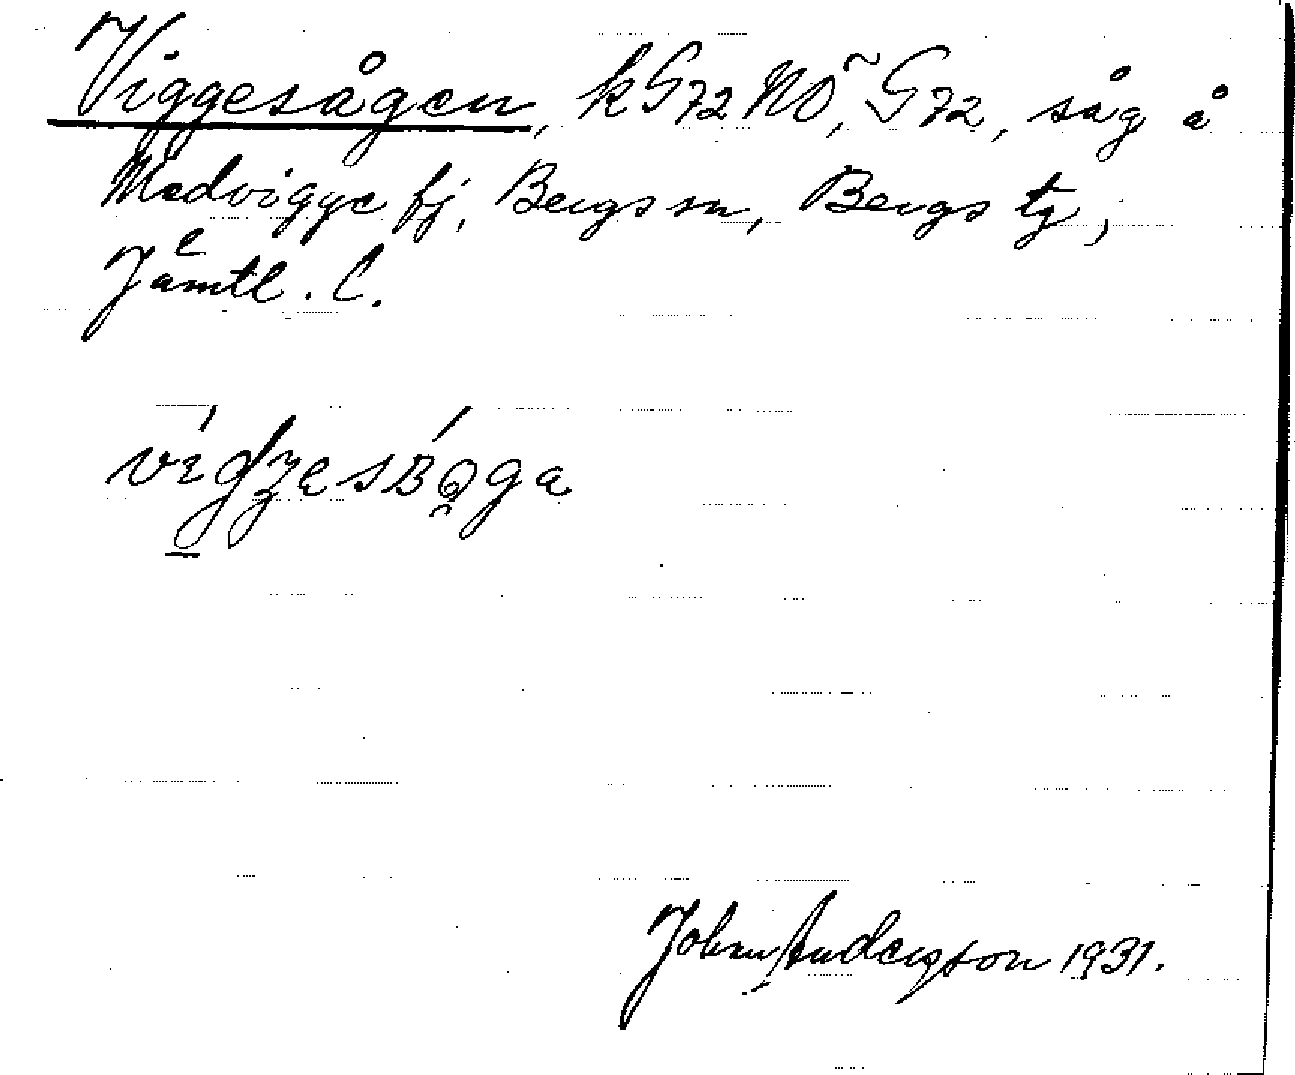 Viggesågen, k G72 NO, G72, såg å
Medvigge fj. Bergs sn, Bergs tg,
Jämtl. l.
John Anderson 1931.